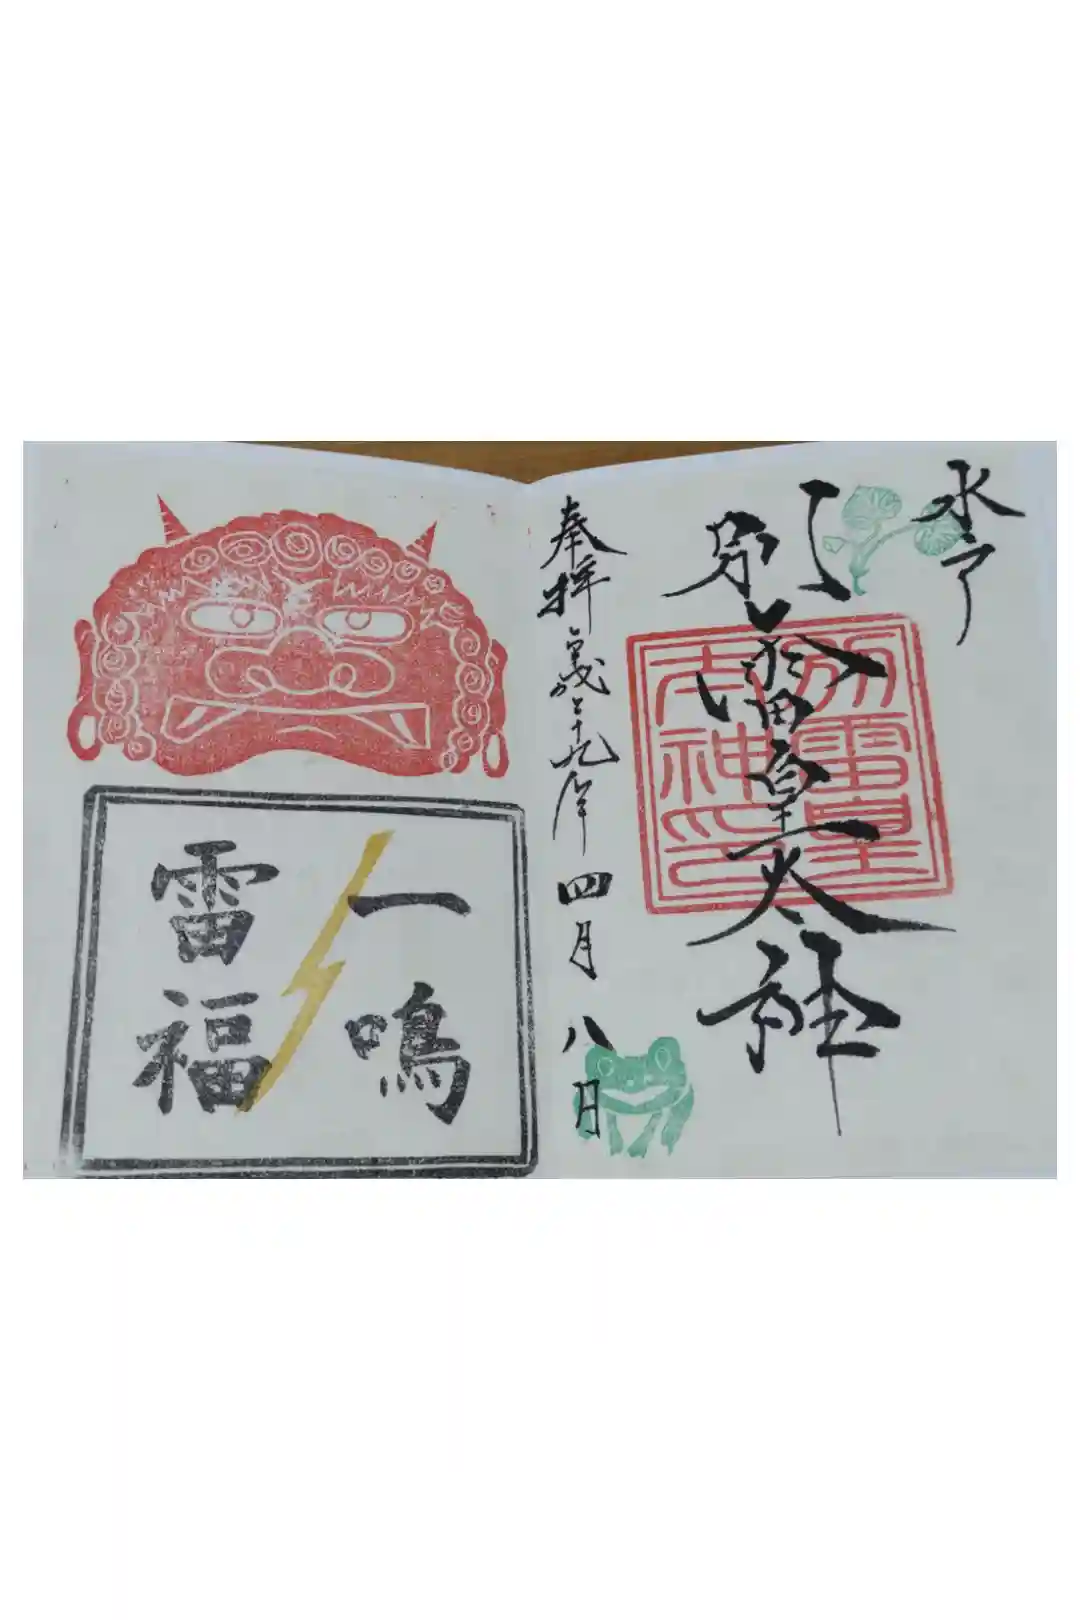 水戸
別雷皇太神
別雷皇
太神印
奉拝 平成二十九年 四月 八日
一鳴
雷福